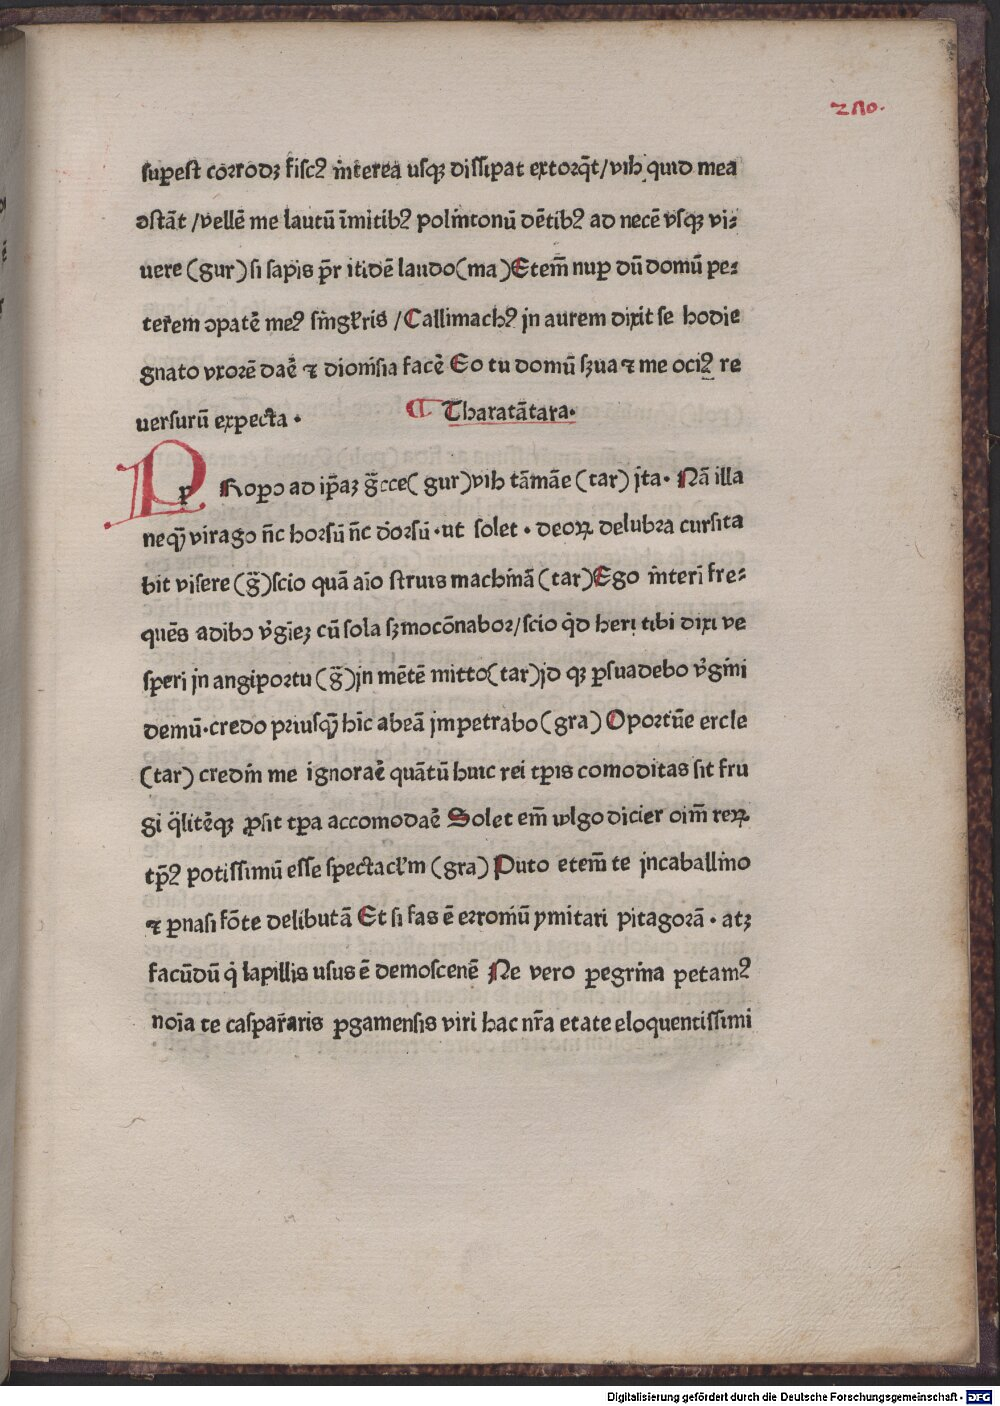 280.
suꝑest corrodꝫ fiscꝰ īterea usqꝫ dissipat extorq̄t / vih quid mea
ꝯstāt / vellē me lautū īmitibꝰ polintonū dētibꝰ ad necē vsqꝫ vi⸗
uere (gur) si sapis pr̄r itidē laudo (ma) Etem̄ nuꝑ dū domū pe⸗
terem ꝯpatē meꝰ / Callimachꝰ jn aurem dixit se hodie
gnato vxorē daē ⁊ dionisia facē Eo tu domū sꝫua ⁊ me ociꝰ re
uersurū expecta .
¶ Tharatātara.
PRopo ad ip̄aꝫ g̃cce (gur) vih tāmāe (tar) jta . Nā illa
neqꝙ virago ñc horsū ñc dorsū . ut solet . deoꝝ delubra cursita
bit visere (g̃) scio quā aīo struis machinā (tar) Ego interī fre⸗
quēs adibo v̓gīeꝫ cū sola sꝫmocōnabor / scio q̇d heri tibi dixi ve
speri jn angiportu (g̃) jn mētē mitto (tar) jd qꝫ ꝑsuadebo v̓gini
demū . credo priusqꝙ hīc abeā jmpetrabo (gra) Oportūe ercle
(tar) credin me ignoraē quātū huic rei tꝑis comoditas sit fru
gi q̄litēqꝫ ꝓsit tꝑa accomodaē Solet em̄ wlgo dicier oim̄ reꝝ
tp̄ꝰ potissimū esse spectacl̓m (gra) Puto etem̄ te jncaballino
⁊ ꝑnasi fōte delibutā Et si fas ē erroniū ymitari pitagorā . atꝫ
facūdū q̇ lapillis usus ē demoscenē Ne vero ꝑegrina petamꝰ
noīa te casparīaris ꝑgamensis viri hac nr̄a etate eloquentissimi
Digitalisierung gefördert durch die Deutsche Forschungsgemeinschaft - DFG